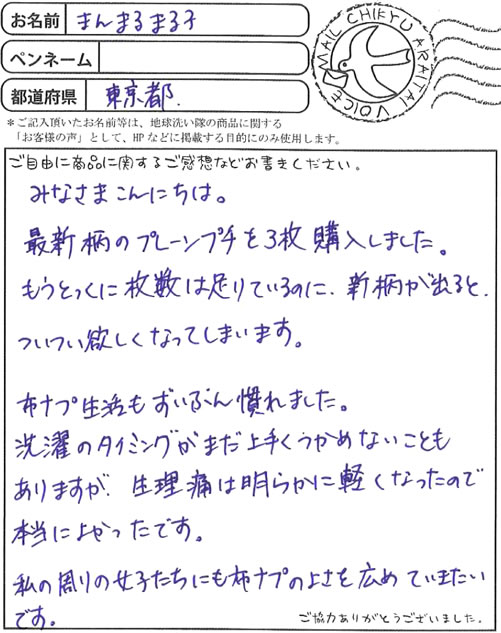 お名前 まんまるまる子
MAIL CHIKYU ARAITAI VOICE
ペンネーム
都道府県 東京都.
＊ご記入頂いたお名前等は、地球洗い隊の商品に関する
「お客様の声」として、HPなどに掲載する目的にのみ使用します。
ご自由に商品に関するご感想などお書きください。
みなさまこんにちは。
最新柄のプレーンプチを3枚購入しました。
もうとっくに枚数は足りているのに、新柄が出ると、
ついつい欲しくなってしまいます。
布ナプ生活もずいぶん慣れました。
洗濯のタイミングがまだ上手くつかめないことも
ありますが、生理痛は明らかに軽くなったので
本当によかったです。
私の周りの女子たちにも布ナプのよさを広めていきたい
です。
ご協力ありがとうございました。